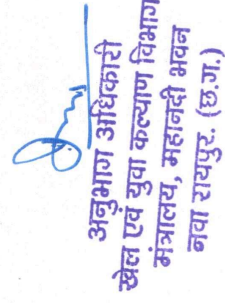 अनुभाग अधिकारी
खेल एवं युवा कल्याण विभाग
मंत्रालय, महानदी भवन
नवा रायपुर (छ.ग.)